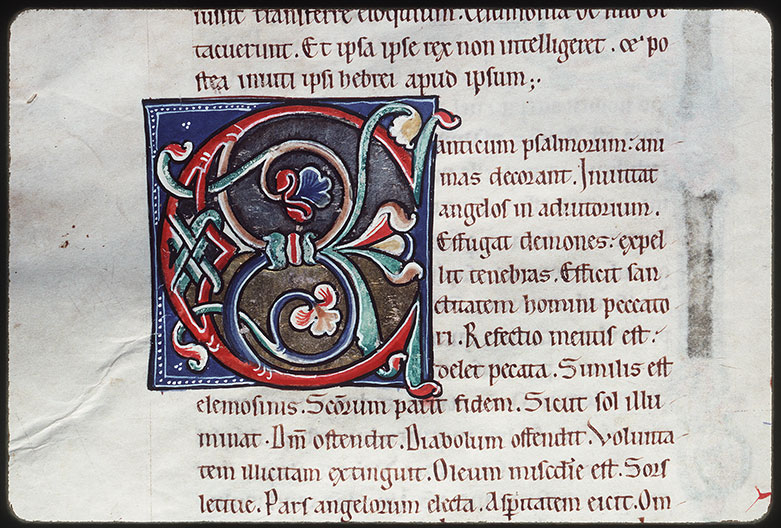 transferre eloquium.
tacuerunt. Et ipsa ipse rex non intelligeret. & po
stea inuiti ipsi hebrei apud ipsum;.
Canticum psalmorum: ani
mas decorant. Inuitat
angelos in adiutorium.
Effugat demones: expel
lit tenebras. Efficit san
ctitatem homini peccato
ri. Refectio mentis est.
delet peccata. Similis est
elemosinis. Scōrum parit fidem. Sicut sol illu
minat. Dm̄ ostendit. Diabolum offendit. Volunta
tem illicitam extinguit. Oleum misc̄die est. Sors
letitie. Pars angelorum electa. Asp̄itatem eicit. Om